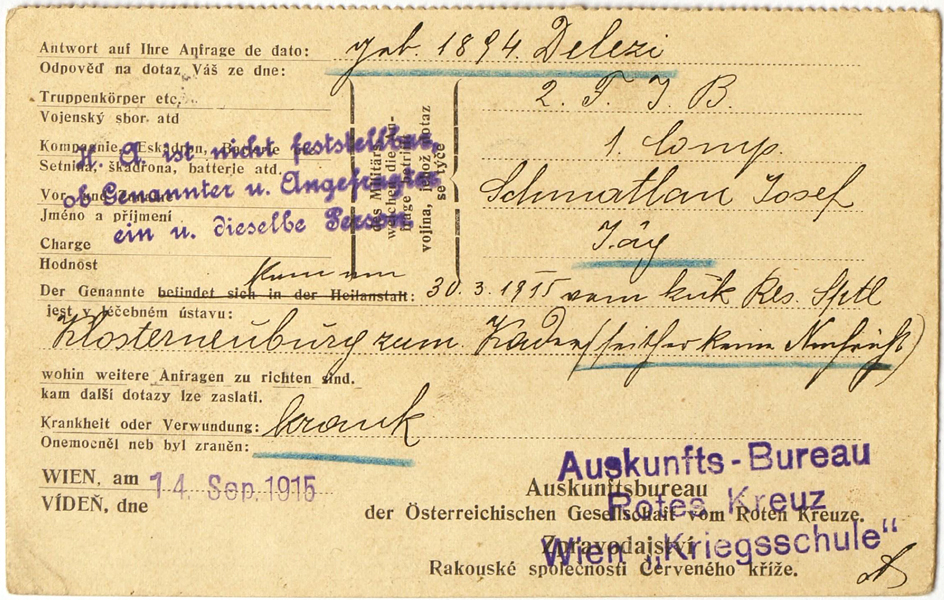 Antwort auf Ihre Anfrage de dato: geb. 1894 Delezi
Odpověď na dotaz Váš ze dne:
Truppenkörper etc. 2. T. J. B.
Vojenský sbor atd
Kompagnie, Eskadron, Batterie 1 Comp.
Setnina, škadrona, batterie atd.
Jméno a příjmení Josef
Charge Jäg
Hodnost
des Militärs
welchen die An-
frage betrifft
vojína, jehož dotaz
se týče
H. A. ist nicht feststellbar,
ob Genannter u. Angefragter
ein u. dieselbe Person
Der Genannte befindet sich in der Heilanstalt: kam am 30. 3. 1915 vom kuk Res. Sptl
jest v léčebném ústavu:
Klosterneuburg zum Kader (seither keine
wohin weitere Anfragen zu richten sind.
kam další dotazy lze zaslati.
Krankheit oder Verwundung: krank
Onemocněl neb byl zraněn:
WIEN, am 14. Sep. 1915
VÍDEŇ, dne
Auskunfts-Bureau
Rotes Kreuz
Wien „Kriegsschule“
Auskunftsbureau
der Österreichischen Gesellschaft vom Roten Kreuze.
Zpravodajství
Rakouské společnosti Červeného kříže.